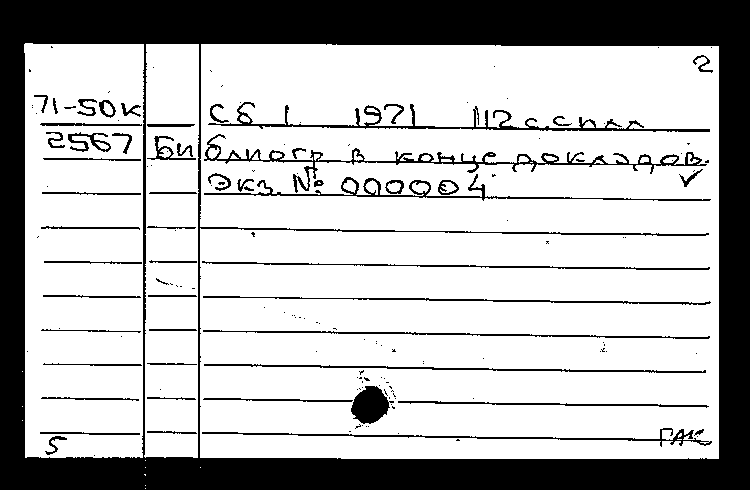 2
71-50К Сб 1 1971 112 с. с илл
2567 Библиогр в конце докладов.
Экз. № 000004 ✓
5 ГАК